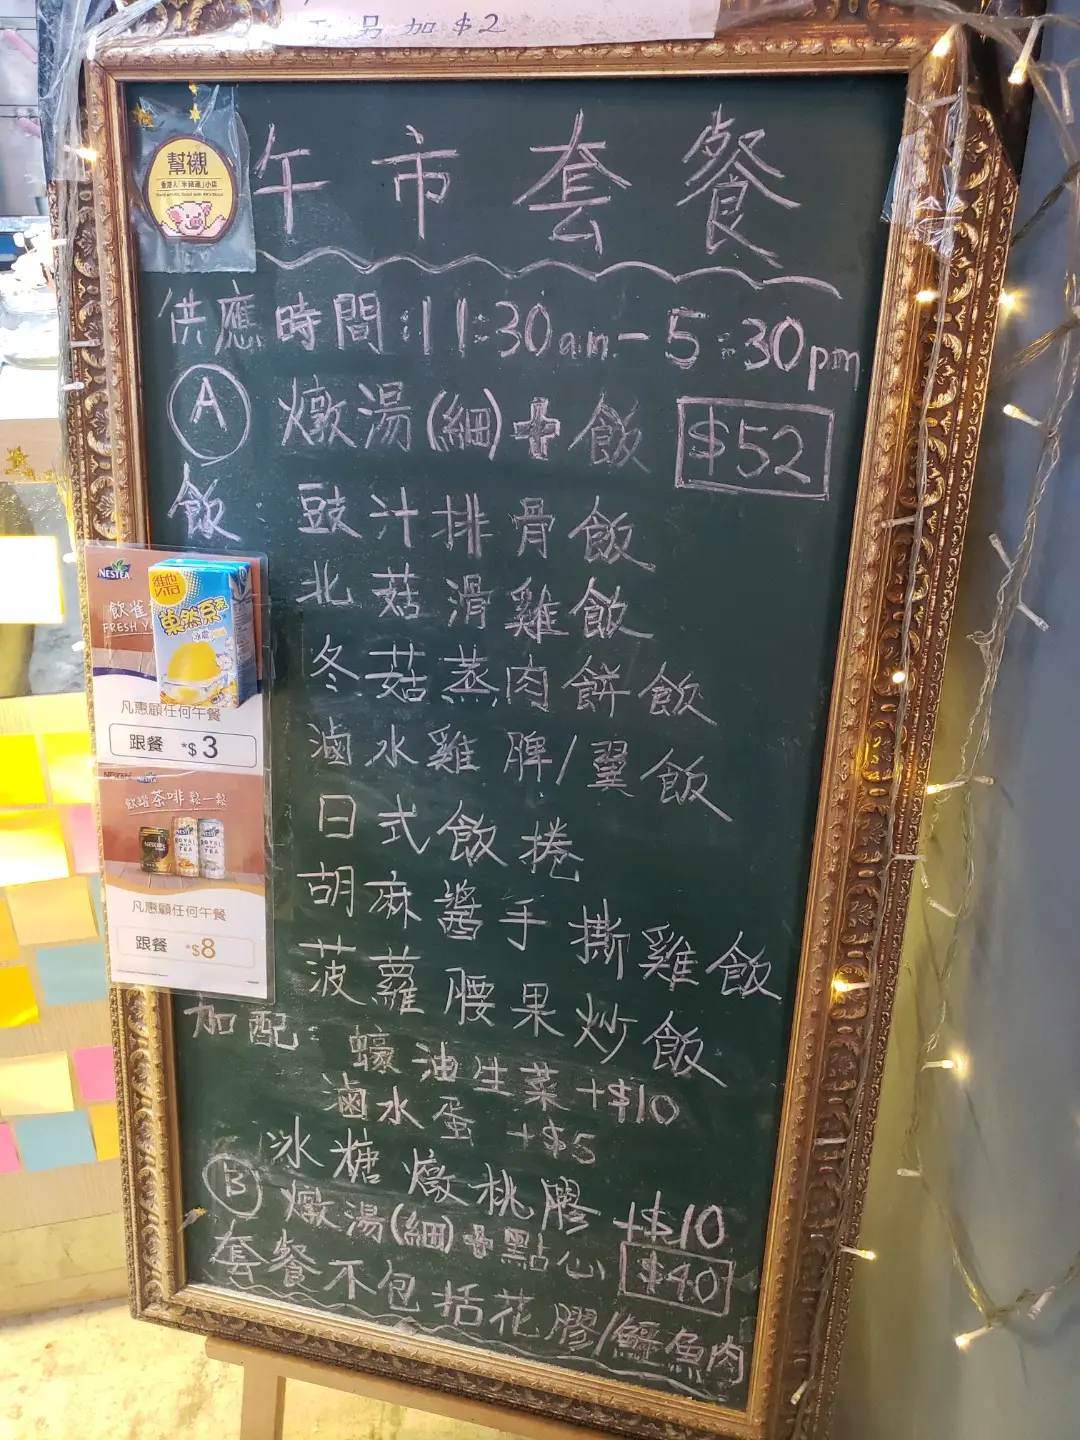 品加$2
幫襯
香港人「米豬蓮」小店
午市套餐
供應時間:11:30am-5:30pm
A 燉湯(細)+飯 $52
飯 豉汁排骨飯
北菇滑雞飯
冬菇蒸肉餅飯
滷水雞脾/翼飯
日式飯捲
胡麻醬手撕雞飯
菠蘿腰果炒飯
NESTEA
飲雀
維他
菓然系
凡惠顧任何午餐
跟餐 *$3
飲罐茶啡鬆一鬆
凡惠顧任何午餐
跟餐 *$8
加配: 蠔油生菜 +$10
滷水蛋 +$5
冰糖燉桃膠 +$10
B 燉湯(細)+點心 $40
套餐不包括花膠/鱷魚肉